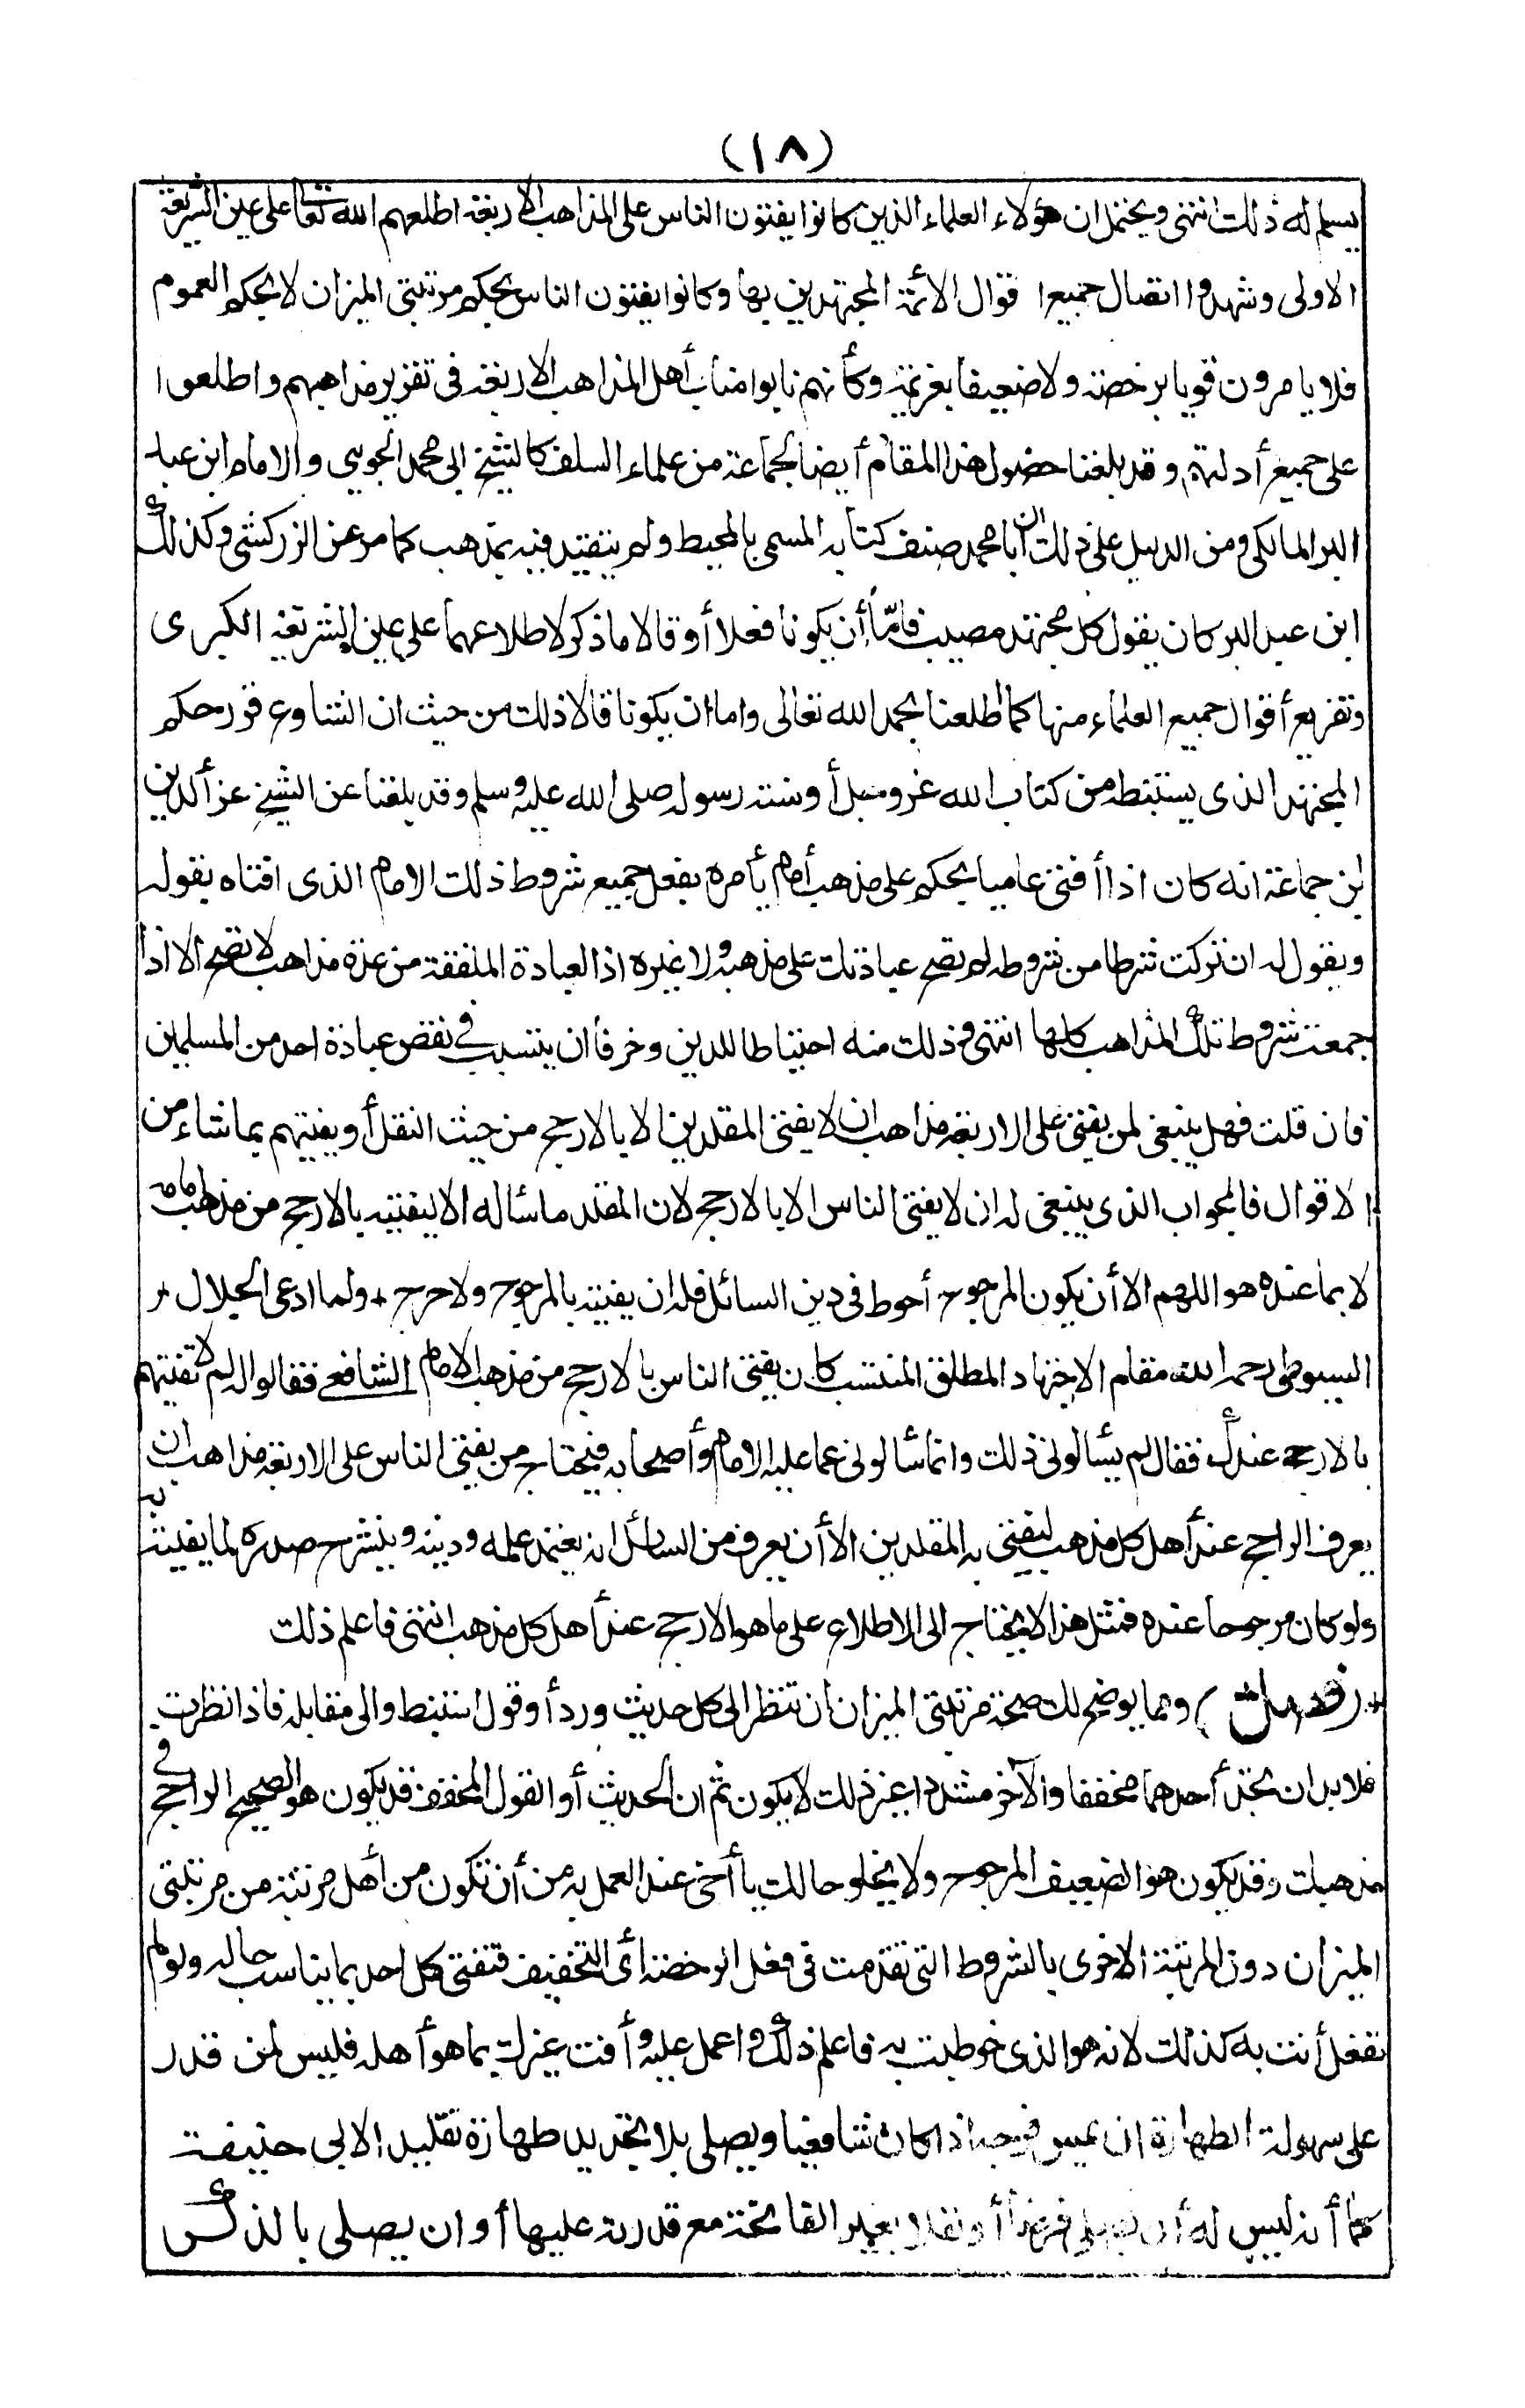 (١٨)
يسلم له ذلك انتهى ويحتمل ان هؤلاء العلماء الذين كانوا يفتون الناس على المذاهب الاربعة اطلعهم الله تعالى على عين الشريعة
الاولى وشهدوا اتصال جميع اقوال الائمة المجتهدين بها وكانوا يفتون الناس بحكم مرتبتى الميزان لا بحكم العموم
فلا يامرون قويا برخصة ولا ضعيفا بعزيمة وكأنهم نابوا مناب أهل المذاهب الاربعة فى تقرير مذاهبهم واطلعوا
على جميع أدلتهم وقد بلغنا حصول هذا المقام أيضا لجماعة من علماء السلف كالشيخ ابى محمد الجوينى والامام ابن عبد
البر المالكى ومن الدليل على ذلك ان أبا محمد صنف كتابه المسمى بالمحيط ولم يتقيد فيه بمذهب كما مر عن الزركشى وكذلك
ابن عبد البر كان يقول كل مجتهد مصيب فامّا أن يكونا فعلا أو قالا ما ذكر لاطلاعهما على عين الشريعة الكبرى
وتفريع أقوال جميع العلماء منها كما أطلعنا بحمد الله تعالى واما ان يكونا قالا ذلك من حيث ان الشارع قرر حكم
المجتهد الذى يستنبطه من كتاب الله عز وجل أو سنة رسوله صلى الله عليه وسلم وقد بلغنا عن الشيخ عز الدين
بن جماعة انه كان اذا أفتى عاميا بحكم على مذهب أمام يأمره بفعل جميع شروط ذلك الامام الذى افتاه بقوله
ويقول له ان تركت شرطا من شروطه لم تصح عبادتك على مذهبه ولا غيره اذ العبادة الملفقة من عدة مذاهب لا تصح الا اذا
جمعت شروط تلك المذاهب كلها انتهى وذلك منه احتياطا للدين وخوفا أن يتسبب في نقص عبادة احد من المسلمين
فان قلت فهل ينبغى لمن يفتى على الاربعة مذاهب ان لا يفتى المقلدين الا بالارجح من حيث النقل أو يفتيهم بما شاء من
الاقوال فالجواب الذى ينبغى له ان لا يفتى الناس الا بالارجح لان المقلد ما سأله الا ليفتيه بالارجح من مذهب امامه
لا بما عنده هو اللهم الا أن يكون المرجوح أحوط فى دين السائل فله ان يفتيه بالمرجوح ولا حرج + ولما ادعى الجلال +
السيوطى رحمه الله مقام الاجتهاد المطلق المنتسب كان يفتى الناس بالارجح من مذهب الامام الشافعي فقالوا له لم لا تفتيهم
بالارجح عندك فقال لم يسألونى ذلك وانما سألونى عما عليه الامام وأصحابه فيحتاج من يفتى الناس على الاربعة مذاهب ان
يعرف الراجح عند أهل كل مذهب ليفتى به المقلدين الا أن يعرف من السائل انه يعتمد علمه ودينه وينشرح صدره لما يفتيه به
ولو كان مرجوحا عنده فمثل هذا لا يحتاج الى الاطلاع على ما هو الارجح عند أهل كل مذهب انتهى فاعلم ذلك
+ (فصل) ومما يوضح لك صحة مرتبتى الميزان ان تنظر الى كل حديث ورد أو قول استنبط والى مقابله فاذا نظرت
فلا بد ان تجد أحدهما مخففا والآخر مشددا غير ذلك لا يكون ثم ان الحديث أو القول المخفف قد يكون هو الصحيح الراجح فى
مذهبك وقد يكون هو الضعيف المرجوح ولا يخلو حالك يا أخى عند العمل به من أن تكون من أهل مرتبة من مرتبتى
الميزان دون المرتبة الاخرى بالشروط التى تقدمت فى فعل الرخصة أى التخفيف فتفتى كل احد بما يناسب حاله ولو لم
تفعل أنت به كذلك لانه هو الذى خوطبت به فاعلم ذلك واعمل عليه وأفت غيرك بما هو أهله فليس لمن قدر
على سهولة الطهارة ان يمس فرجه اذا كان شافعيا ويصلى بلا تجديد طهارة تقليد الابى حنيفة
كما أنه ليس له أن يصلى فرضا أو نفلا بغير الفاتحة مع قدرته عليها أو ان يصلى بالذكر